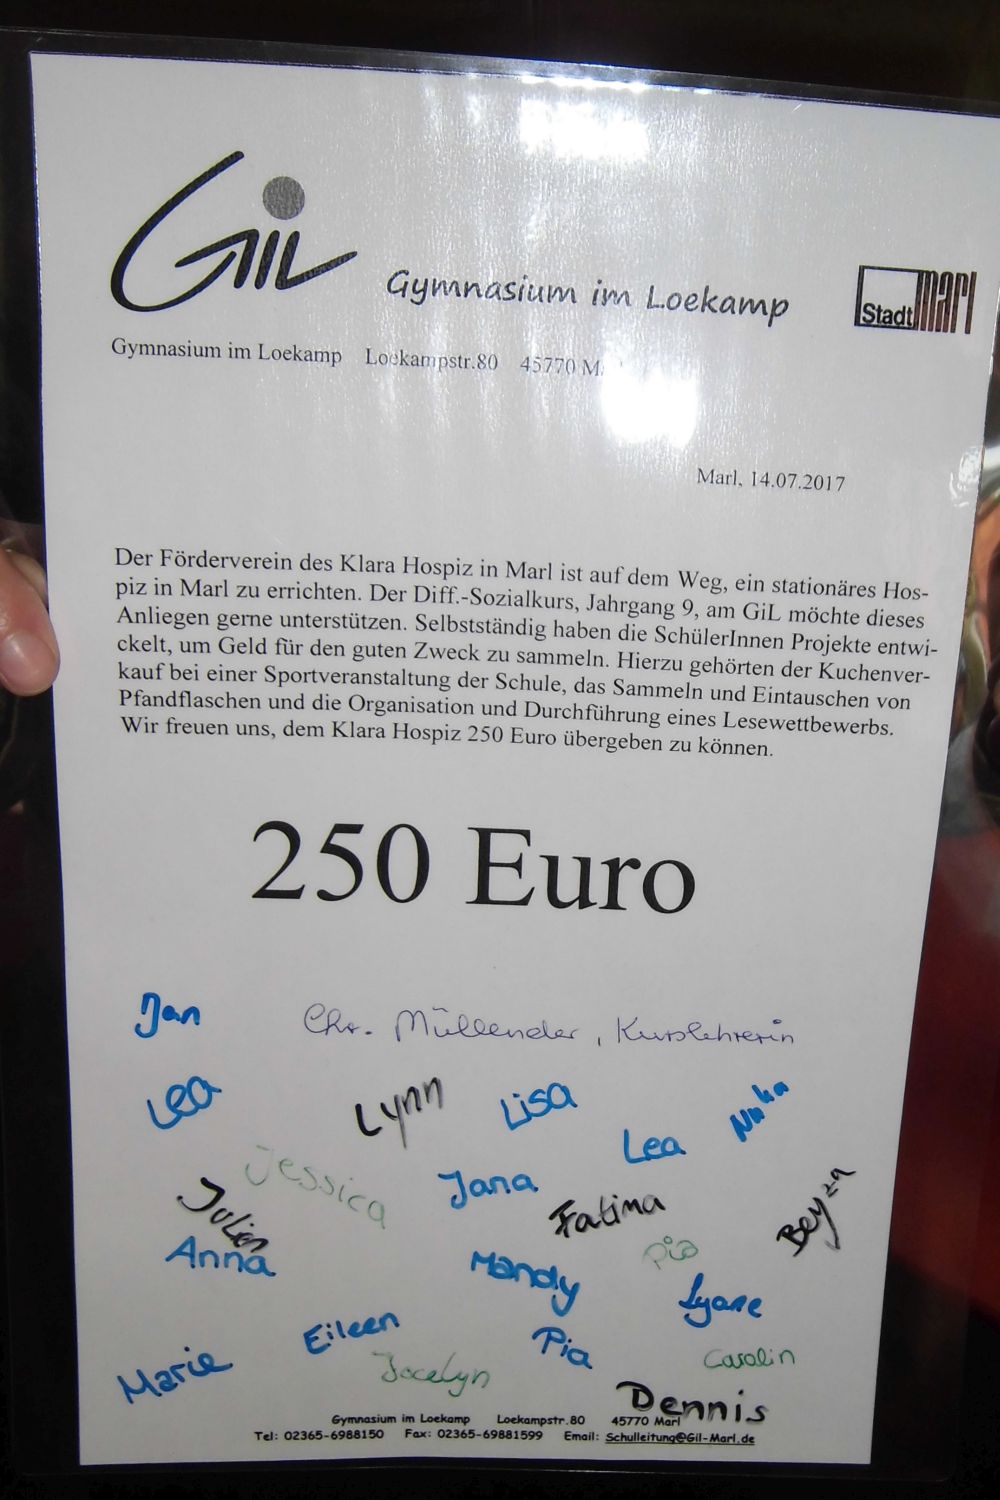 GiL
Gymnasium im Loekamp
Stadt marl
Gymnasium im Loekamp Loekampstr.80 45770
Marl, 14.07.2017
Der Förderverein des Klara Hospiz in Marl ist auf dem Weg, ein stationäres Hos-
piz in Marl zu errichten. Der Diff.-Sozialkurs, Jahrgang 9, am GiL möchte dieses
Anliegen gerne unterstützen. Selbstständig haben die SchülerInnen Projekte entwi-
ckelt, um Geld für den guten Zweck zu sammeln. Hierzu gehörten der Kuchenver-
kauf bei einer Sportveranstaltung der Schule, das Sammeln und Eintauschen von
Pfandflaschen und die Organisation und Durchführung eines Lesewettbewerbs.
Wir freuen uns, dem Klara Hospiz 250 Euro übergeben zu können.
250 Euro
Jan Chr. Müllender, Kurslehrerin
Lea Lynn Lisa
Lea
Jessica Jana
Julien Fatima Beyza
Anna Mandy Pia
Lyane
Eileen Pia
Marie Jocelyn Carolin
Dennis
Gymnasium im Loekamp Loekampstr.80 45770 Marl
Tel: 02365-6988150 Fax: 02365-69881599 Email: Schulleitung@Gil-Marl.de